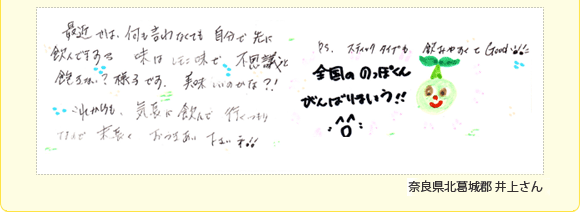 最近では、何も言わなくても自分で先に
飲んでまする 味はレモン味で 不思議と
飽きない？様子です。美味しいのかな？！
これからも、気長に飲んで行くつもり
なんで 末長く おつきあい 下さいネ!!
P.S. スティックタイプも 飲みやすくて Good!!
全国ののっぽくん
がんばりましょう!!
奈良県北葛城郡 井上さん